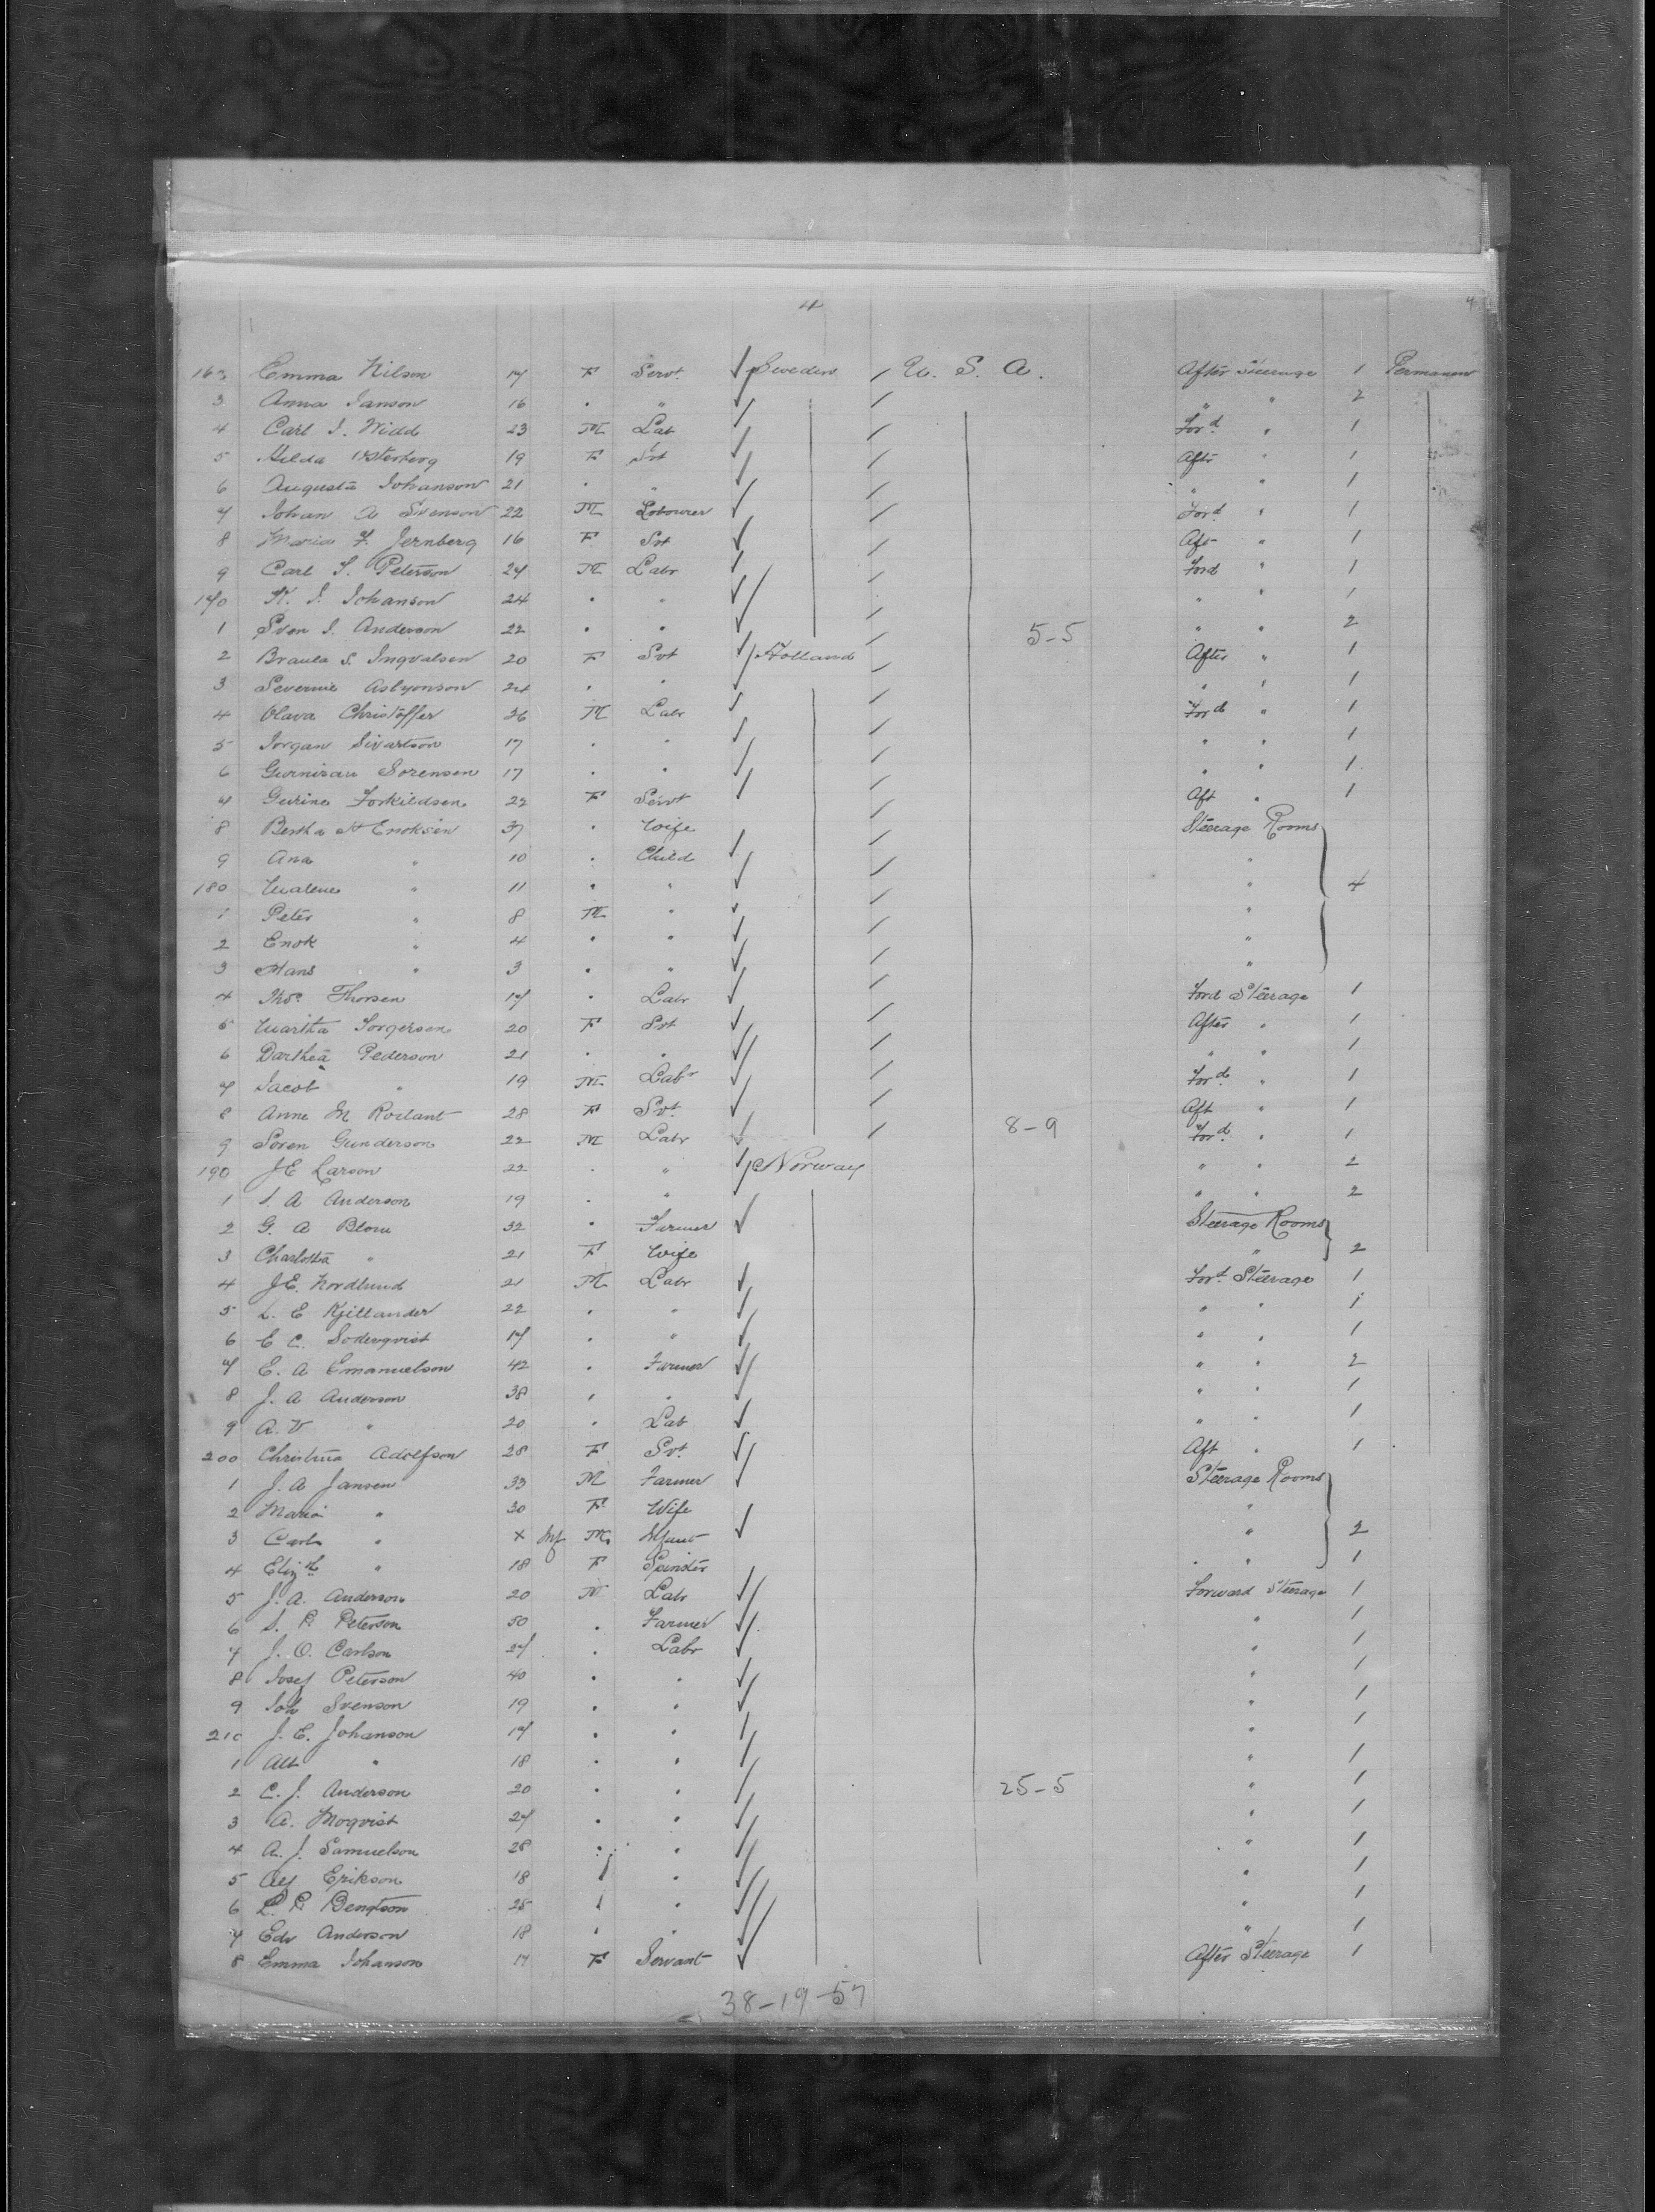 4 4
Emma Nilson 17 F Servt. Sweden U. S. A. After Steerage 1 Permanen
3 Anna Janson 16 " " " " 2
4 Carl J. Widd 23 M Lab Ford " 1
5 Hilda 19 F Svt After " 1
6 Augusta Johanson 21 " " " " 1
7 Johan A Svenson 22 M Labourer Ford " 1
8 Maria F. Jernberg 16 F Svt Aft " 1
9 Carl S. Peterson 27 M Labr Ford " 1
170 K. J. Johanson 24 " " " " 1
1 Sven J. Anderson 22 " " 5-5 " " 2
2 Braula S. Ingvalsen 20 F Svt Holland After " 1
3 Severine 24 " " " " 1
4 Olava Christoffer 36 M Labr Ford " 1
5 Jorgan Sivartson 17 " " " " 1
6 Sorensen 17 " " " " 1
7 Gurine Torkildsen 22 F Servt Aft " 1
8 Bertha H Enoksen 37 " Wife Steerage Rooms
9 Ana " 10 " Child "
180 Malene " 11 " " " 4
1 Peter " 8 M " "
2 Enok " 4 " " "
3 Hans " 3 " " "
4 Thos. Thorsen 17 " Labr Ford Steerage 1
5 Martha Jorgersen 20 F Svt After " 1
6 Darthea Pederson 21 " " " " 1
7 Jacob " 19 M Labr Ford " 1
8 Anne M Rorlant 28 F Svt. Aft " 1
9 Soren Gunderson 22 M Labr 8-9 Ford. " 1
190 J E Larson 22 " " Norway " " 2
1 S. A Anderson 19 " " " " 2
2 G. A Blom 32 " Farmer Steerage Rooms
3 Charlotta " 21 F Wife " 2
4 J E. Nordlund 21 M Labr Ford. Steerage 1
5 L. E Kjillander 22 " " " " 1
6 E C. Soderqvist 17 " " " " 1
7 E. A Emanuelson 42 " Farmer " " 2
8 J. A Anderson 38 " " " " 1
9 A. V " 20 " Lab " " 1
200 Christina Adolfson 28 F Svt. Aft " 1
1 J. A Jansen 33 M Farmer Steerage Rooms
2 Maria " 30 F Wife "
3 Carl " X Inf M Infant " 2
4 Elizth " 18 F Spinster " " 1
5 J. A. Anderson 20 M Labr Forward Steerage 1
6 S. P. Peterson 50 " Farmer " 1
7 J. O. Carlson 27 " Labr " 1
8 Josef Peterson 40 " " " 1
9 Joh Svenson 19 " " " 1
210 J. E. Johanson 17 " " " 1
1 Alb " 18 " " " 1
2 C. J. Anderson 20 " " 25-5 " 1
3 A. Moqvist 27 " " " 1
4 A. J. Samuelson 28 " " " 1
5 Alf Erikson 18 " " " 1
6 L. P. Bengtson 25 " " " 1
7 Edv Anderson 18 " " " 1
8 Emma Johanson 17 F Servant After Steerage 1
38-19-57